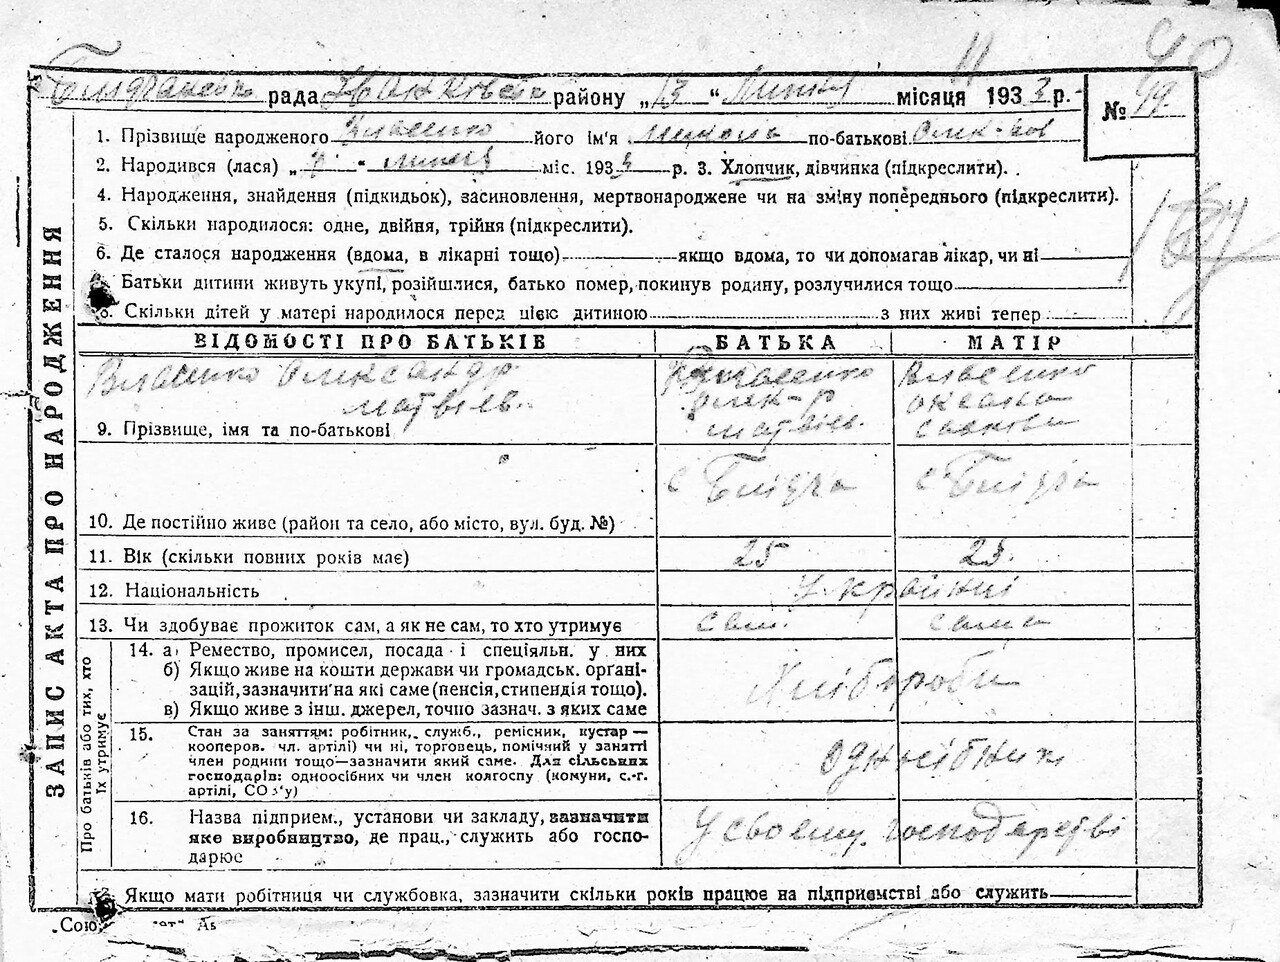 рада Іванківськ району „13“ Липня місяця 1933 р.
№ 49
1. Прізвище народженого Власенко його ім'я Микола по-батькові Олек-ров
2. Народився (лася) „ “ липня міс. 1933 р. 3. Хлопчик, дівчинка (підкреслити).
4. Народження, знайдення (підкидьок), засиновлення, мертвонароджене чи на зміну попереднього (підкреслити).
5. Скільки народилося: одне, двійня, трійня (підкреслити).
6. Де сталося народження (вдома, в лікарні тощо) якщо вдома, то чи допомагав лікар, чи ні
Батьки дитини живуть укупі, розійшлися, батько помер, покинув родину, розлучилися тощо
8. Скільки дітей у матері народилося перед цією дитиною з них живі тепер
ЗАПИС АКТА ПРО НАРОДЖЕННЯ
ВІДОМОСТІ ПРО БАТЬКІВ БАТЬКА МАТІР
Власенко Олександр Власенко Власенко
Матвієв. Олек-р Оксана
9. Прізвище, імя та по-батькові Матвієв. Савківн
с Блідча с Блідча
10. Де постійно живе (район та село, або місто, вул. буд. №)
11. Вік (скільки повних років має) 25 23.
12. Національність Українці
13. Чи здобуває прожиток сам, а як не сам, то хто утримує сам. сама
Про батьків або тих, хто
їх утримує
14. а) Ремество, промисел, посада і спеціяльн. у них
б) Якщо живе на кошти держави чи громадськ. орґані-
зацій, зазначити на які саме (пенсія, стипендія тощо). Хлібороби
в) Якщо живе з інш. джерел, точно зазнач. з яких саме
15. Стан за заняттям: робітник, служб., ремісник, кустар —
кооперов. чл. артілі) чи ні, торговець, помічний у занятті
член родини тощо—зазначити який саме. Для сільських Одноосібник
господарів: одноосібних чи член колгоспу (комуни, с.-г.
артілі, СО у)
16. Назва підприєм., установи чи закладу, зазначити
яке виробництво, де прац., служить або госпо- У своєму господарстві
дарює
Якщо мати робітниця чи службовка, зазначити скільки років працює на підприємстві або служить
„Сою